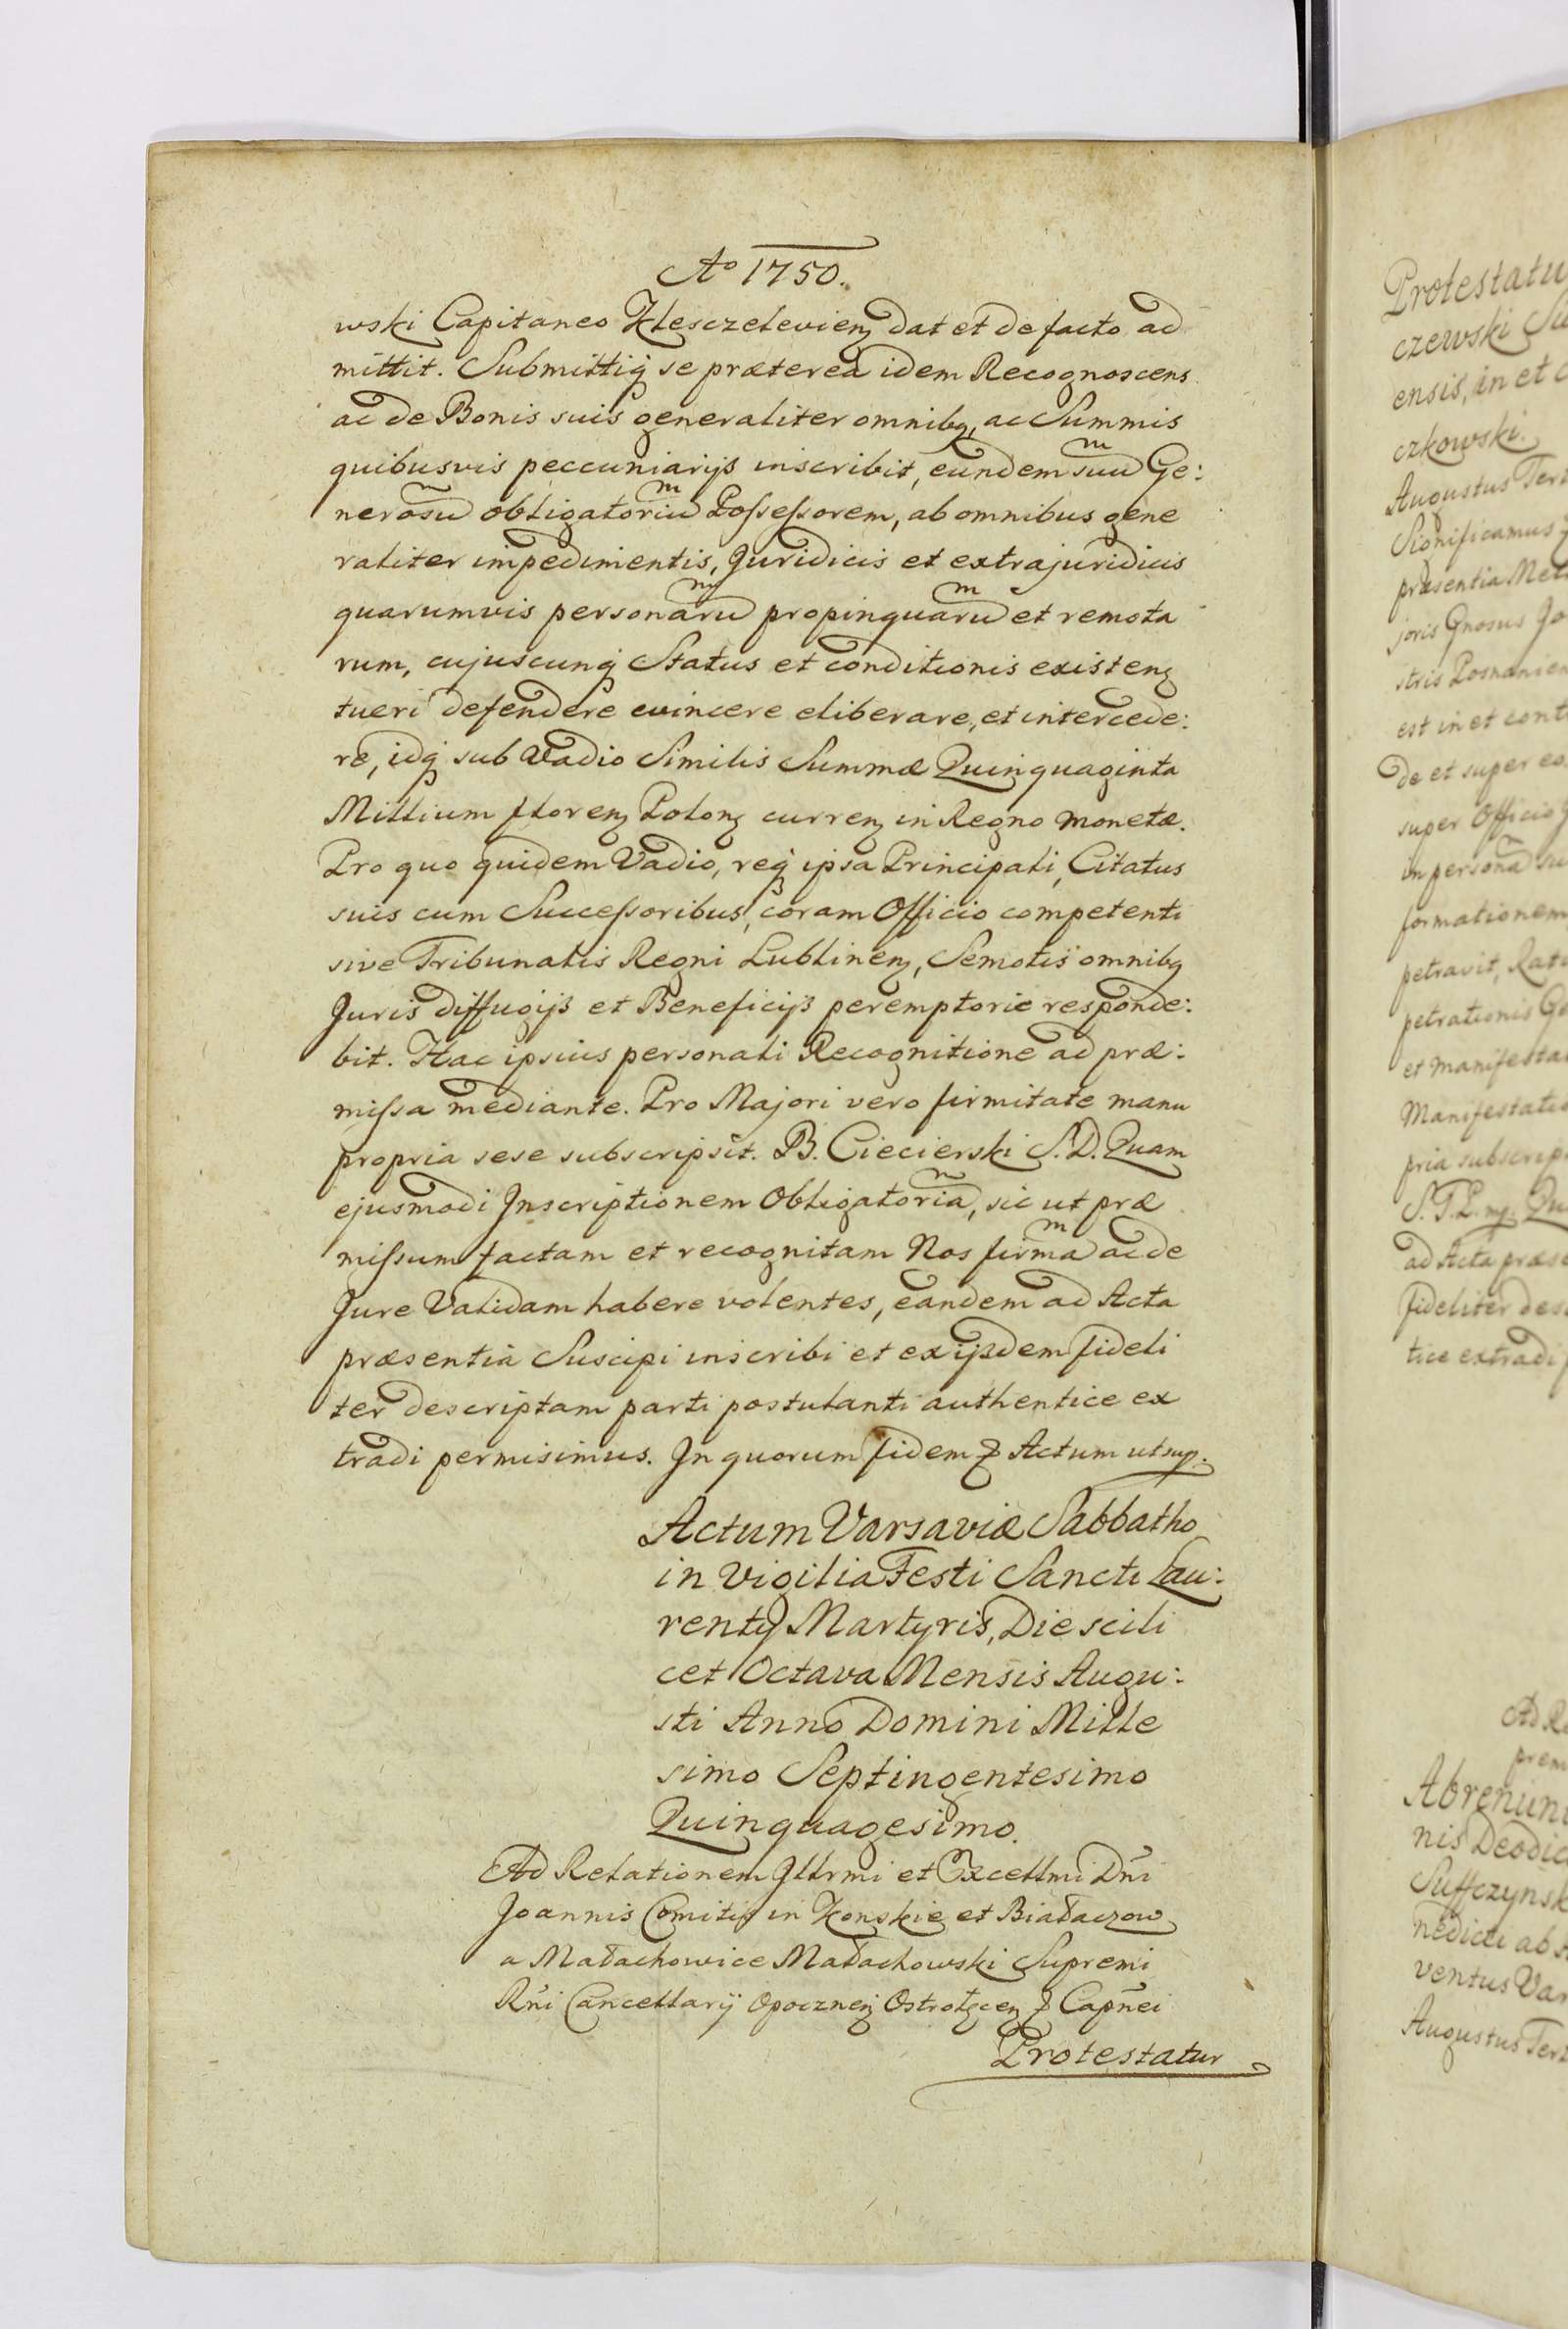 Aº 1750.
wski Capitaneo Klesczelevienȝ dat et de facto ad
mittit. Submittitq́ se præterea idem Recognoscens
ac de Bonis suis generaliter omnibq, ac Summis
quibusvis peccuniarijs inscribit, eundem suũ Ge:
nerosũ obligatoriũ Poſseſsorem, ab omnibus gene
raliter impedimentis, Juridicis et extrajuridicis
quarumvis personarũ propinquarũ et remota
rum, cujuscunq́ Status et conditionis existenȝ
tueri defendere evincere eliberare, et intercede:
re, idq́ sub Vadio Similis Summæ Quinquaginta
Millium florenȝ Polonȝ currenȝ in Regno monetæ.
Pro quo quidem Vadio, req́ ipsa Principali, Citatus
suis cum Succeſsoribus, coram Officio competenti
sive Tribunalis Regni Lublinenȝ, Semotis omnibq
Juris diffugijs et Beneficijs peremptorie responde:
bit. Hac ipsius personali Recognitione ad præ:
miſsa mediante. Pro Majori vero firmitate manu
propria sese subscripsit. B. Ciecierski S. D. Quam
ejusmodi Inscriptionem Obligatoriã, sic ut præ
miſsum factam et recognitam Nos firmã ac de
Jure Validam habere volentes, eandem ad Acta
præsentia Suscipi inscribi et ex ijsdem fideli
ter descriptam parti postulanti authentice ex
tradi permisimus. In quorum fidem ꝛ Actum ut sup.
Actum Varsaviæ Sabbatho
in Vigilia Festi Sancti Lau:
rentij Martyris, Die scili
cet Octava Mensis Augu:
sti Anno Domini Mille
simo Septingentesimo
Quinquagesimo.
Ad Relationem Illrmi et Excellmi Dñi
Joannis Comitis in Konskie et Białaczow
a Małachowice Małachowski Supremi
Rñi Cancellarij Opocznenȝ Ostrołęcenȝ ꝛ Capñei
Protestatur
Protestatu
czewski Su
ensis, in et c
czkowski.
Augustus Ter
Significamus
præsentia Met
joris Gnosus Jo
stris Posnanien
est in et cont
de et super eo
super Officio
in personã su
formationem
petravit, Rati
petrationis Ge
et manifesta
Manifestatio
pria subscrip
S. T. P. mp. Qu
ad Acta præse
fideliter des
tice extradi
Ad Re
prem
Abrenun
nis Deodic
Suffczynsk
nedicti ab
ventus Var
Augustus Ter